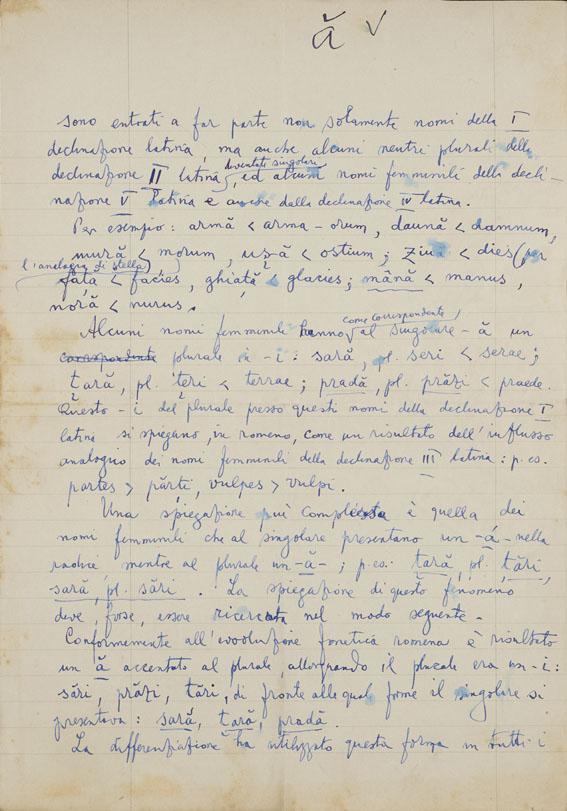 ă √
sono entrati a far parte non solamente nomi della I
declinazione latina, ma anche alcuni neutri plurali della
declinazione II latina diventati singolari, ed alcuni nomi femminili della decli-
nazione V latina e anche dalla declinazione IV latina.
Per esempio: armă < arma-orum, daună < damnum,
mură < morum, ușă < ostium; ziuă < dies (per
l'analogia di stella) față < facies, ghiață < glacies; mână < manus,
noră < nurus.
Alcuni nomi femminili hanno come correspondente al singolare -ă un
correspondente plurale in -i: sară, pl. seri < serae;
țară, pl. țeri < terrae; pradă, pl. prăzi < praede.
Questo -i del plurale presso questi nomi della declinazione I
latina si spiegano, in romeno, come un risultato dell'influsso
analogio dei nomi femminili della declinazione III latina: p. es.
partes > părți, vulpes > vulpi.
Una spiegazione più complessa è quella dei
nomi femminili che al singolare presentano un -á- nella
radice mentre al plurale un -ă-; p. es: țară, pl. țări,
sară, pl. sări. La spiegazione di questo fenomeno
deve, forse, essere ricercata nel modo seguente.
Conformemente all'evoluzione fonetica romena è risultato
un ă accentato al plurale, allorquando il plurale era un -i:
sări, prăzi, țări, di fronte alle quali forme il singolare si
presentava: sară, țară, pradă.
La differenziazione ha utilizzato questa forma in tutti i